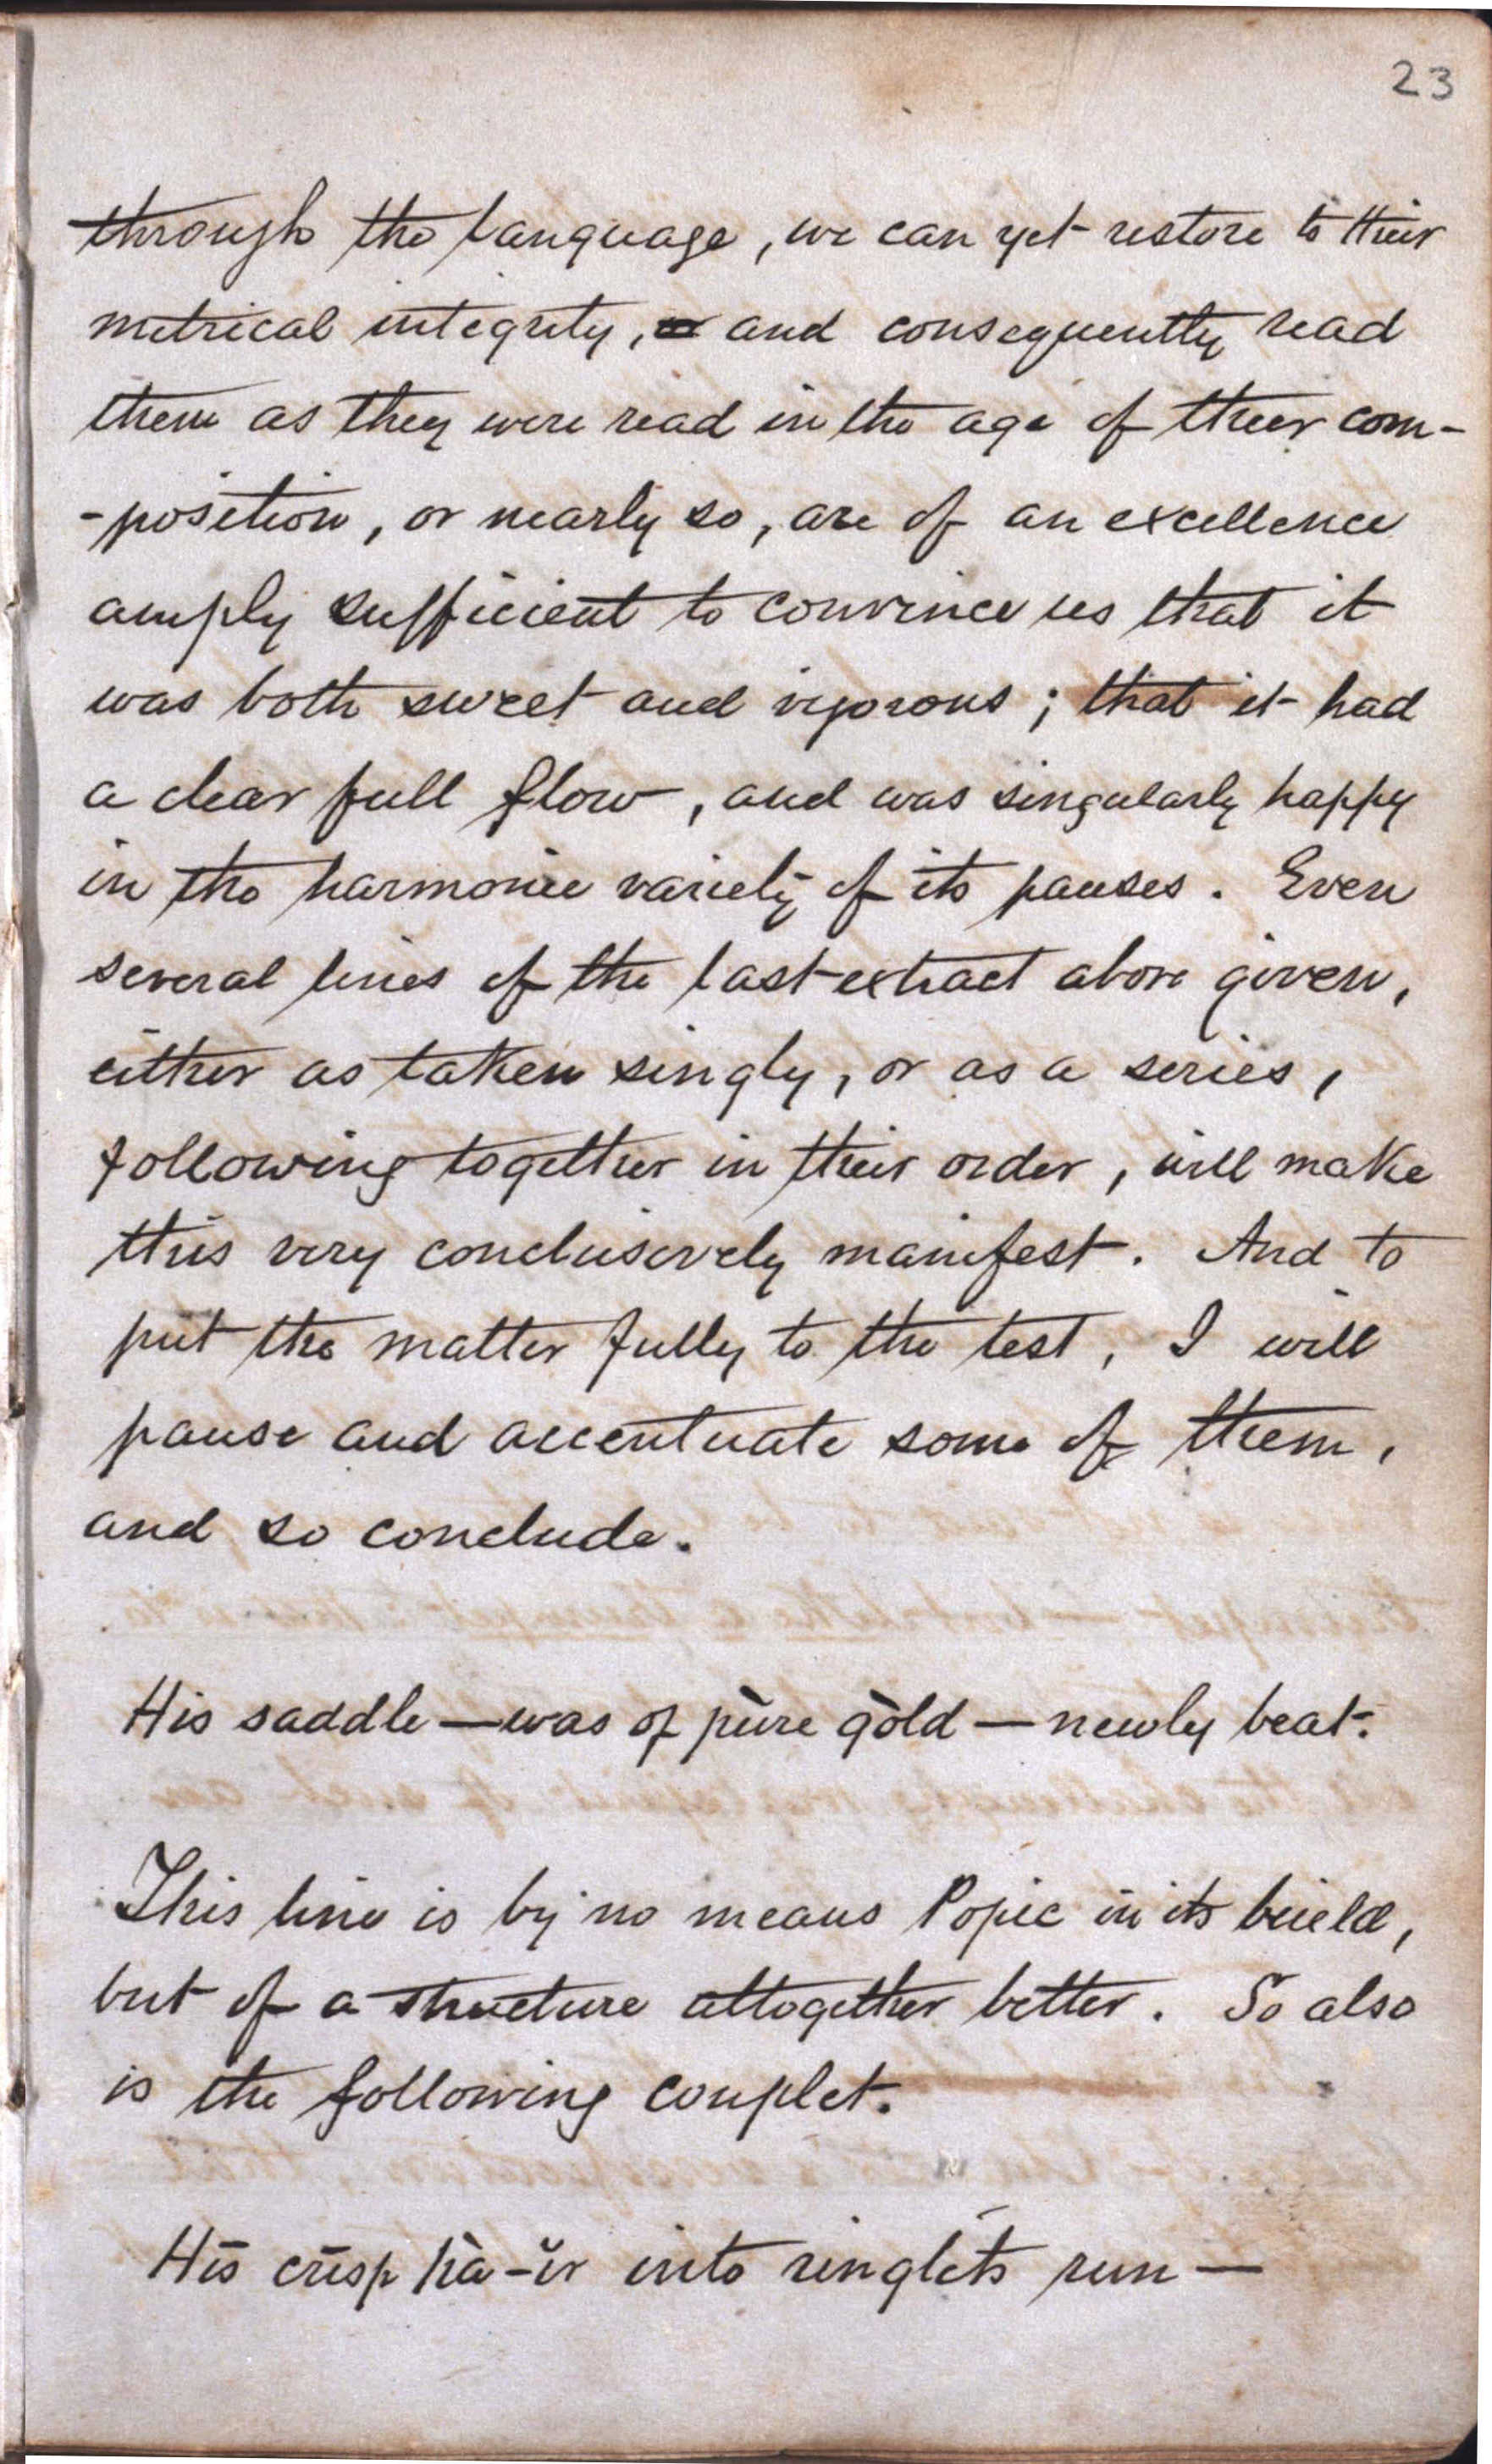 23
through the language, we can yet restore to their
metrical integrity, and consequently read
them as they were read in the age of their com-
-position, or nearly so, are of an excellence
amply sufficient to convince us that it
was both sweet and vigorous; that it had
a clear full flow, and was singularly happy
in the harmonic variety of its pauses. Even
several lines of the last extract above given,
either as taken singly, or as a series,
following together in their order, will make
this very conclusively manifest. And to
put the matter fully to the test, I will
pause and accentuate some of them,
and so conclude.
His saddle — was of pùre gòld — newly beat.
This line is by no means Popic in its build,
but of a structure altogether better. So also
is the following couplet.
Hīs crīsp hà-ĭr into ringlets run —